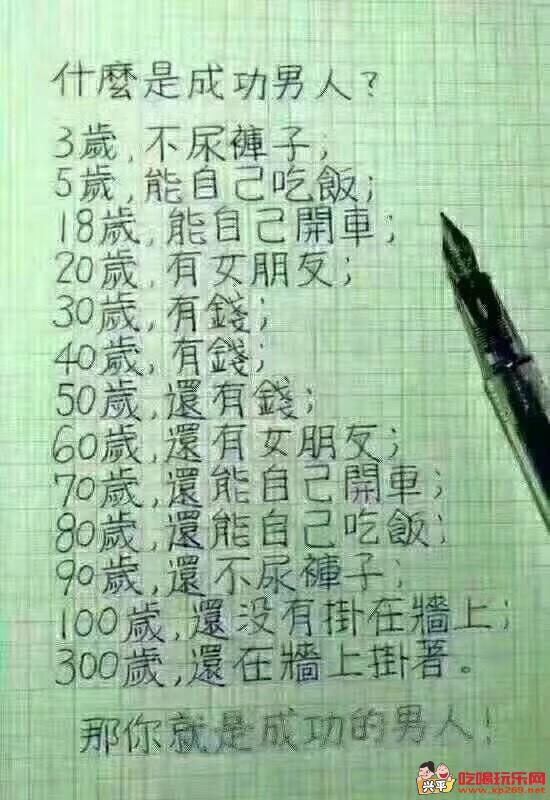 什麼是成功男人?
3歲,不尿褲子;
5歲,能自己吃飯;
18歲,能自己開車;
20歲,有女朋友;
30歲,有錢;
40歲,有錢;
50歲,還有錢;
60歲,還有女朋友;
70歲,還能自己開車;
80歲,還能自己吃飯;
90歲,還不尿褲子;
100歲,還没有掛在牆上;
300歲,還在牆上掛著。
那你就是成功的男人!
兴平
吃喝玩乐网
www.xp269.net